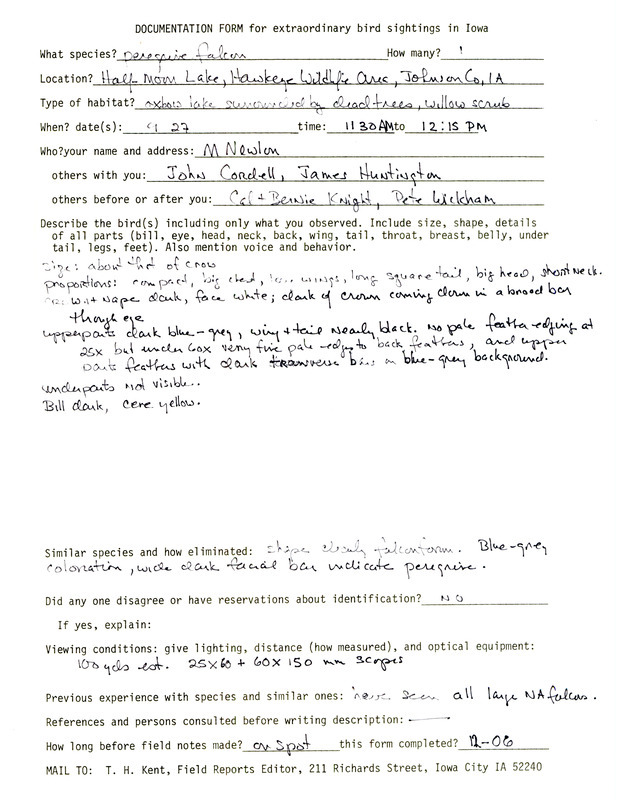 DOCUMENTATION FORM for extraordinary bird sightings in Iowa
What species? peregrine falcon How many? 1
Location? Half Moon Lake, Hawkeye Wildlife Area, Johnson Co, IA
Type of habitat? oxbow lake surrounded by dead trees, willow scrub
When? date(s): 9 27 time: 11 30 AM to 12:15 PM
Who? your name and address: M Newlon
others with you: John Cordell, James Huntington
others before or after you: Cal + Bernie Knight, Pete Wickham
Describe the bird(s) including only what you observed. Include size, shape, details
of all parts (bill, eye, head, neck, back, wing, tail, throat, breast, belly, under
tail, legs, feet). Also mention voice and behavior.
Size: about that of crow
proportions: compact, big chest, long wings, long square tail, big head, short neck.
nape dark, face white; dark of crown coming down in a broad bar
though eye
upperparts dark blue-grey, wing + tail nearly black. No pale feather-edging at
25x but under 60x very fine pale edges to back feathers, and upper
parts feathers with dark transverse bars on blue-grey background.
underparts not visible..
Bill dark, cere yellow.
Similar species and how eliminated: shape clearly falconform. Blue-grey
coloration, wide dark facial bar indicate peregrine.
Did any one disagree or have reservations about identification? NO
If yes, explain:
Viewing conditions: give lighting, distance (how measured), and optical equipment:
100 yds est. 25X60 + 60X150 mm scopes
Previous experience with species and similar ones: have seen all large NA falcons.
References and persons consulted before writing description: —
How long before field notes made? on spot this form completed? 12-06
MAIL TO: T. H. Kent, Field Reports Editor, 211 Richards Street, Iowa City IA 52240